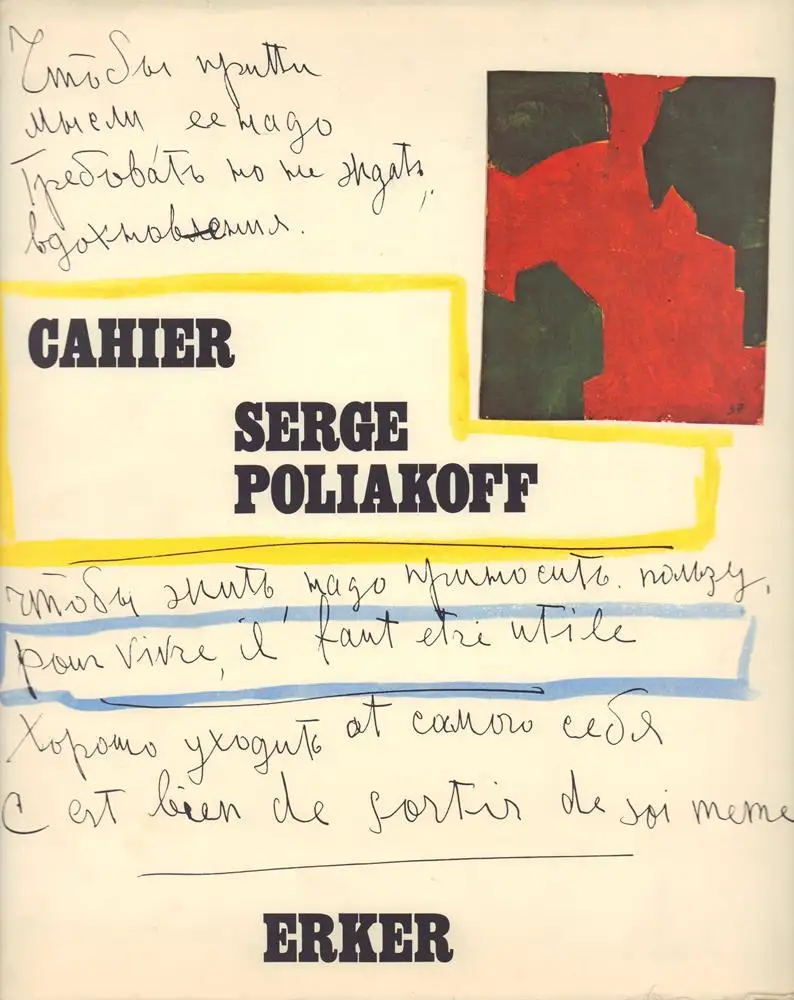 Чтобы притти
мысли ее надо
Требовать но не ждать,
вдохновления.
CAHIER
SERGE
POLIAKOFF
чтобы жить, надо приносить. пользу,
pour vivre, il faut etre utile
Хорошо уходить at самого себя
C est bien de sortir de soi meme
ERKER